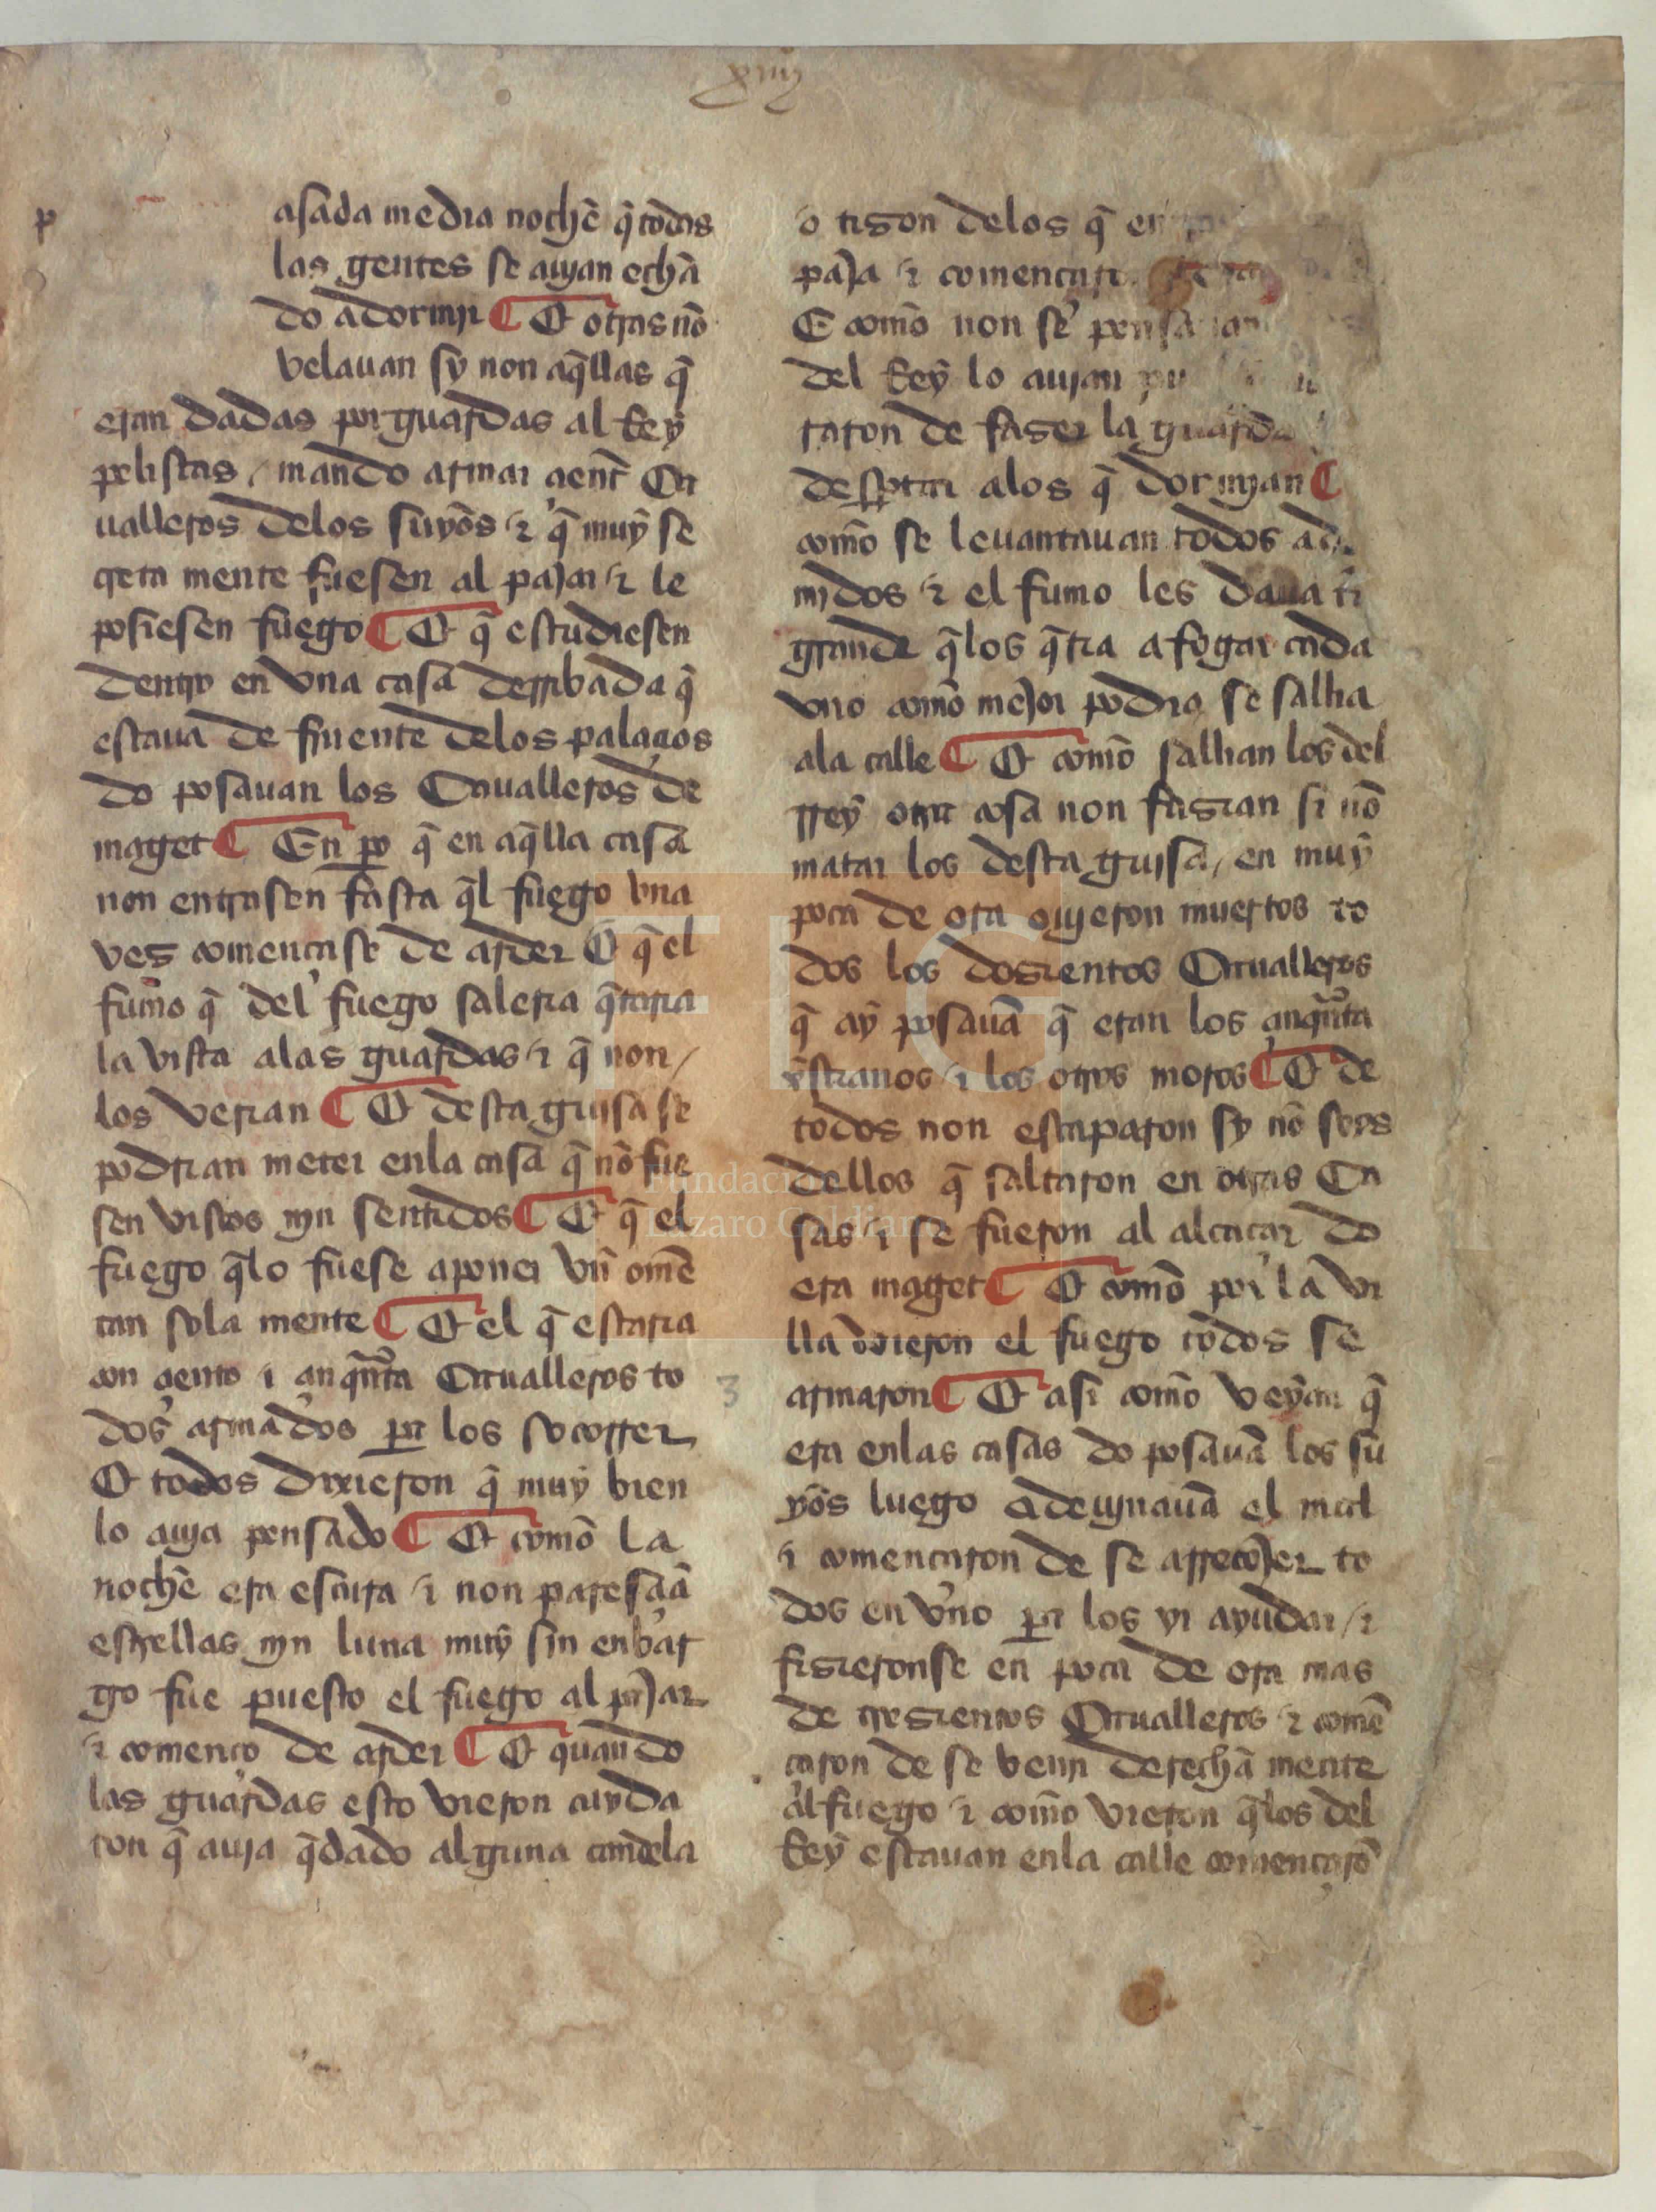 xiiij
p
asada media nochẽ q̃ todas
las gentes se auyan echã
do adormjr ¶ Et otras nõ
velauan sy non aq̃llas q̃
eran dadas por guardas al Rey
pelistas / mando armar çent Ca
ualleros delos suyos ⁊ q̃ muy se
creta mente fuesen al pajar ⁊ le
posiesen fuego ¶ Et q̃ estudiesen
dentro en vna casa derribada q̃
estaua de fruente delos palaçios
do posauan los Caualleros de
maget ¶ En po q̃ en aq̃lla casa
non entrasen fasta q̃l fuego vna
ves començase de arder E q̃ el
fumo q̃ del fuego saleria q̃taria
la vista alas guardas ⁊ q̃ non /
los verian ¶ Et desta guisa se
podrian meter enla casa q̃ nõ fue
sen vistos njn sentidos ¶ Et q̃ el
fuego q̃lo fuese aponer vñ omẽ
tan sola mente ¶ Et el q̃ estaria
con çiento ⁊ çinq̃nta Caualleros to
dos armados pa los socorrer
Et todos dixieron q̃ muy bien
lo auja pensado ¶ Et comõ la
nochẽ era escura ⁊ non paresçiã
estrellas njn luna muy sin enbar
go fue puesto el fuego al pajar
⁊ començo de arder ¶ Et quando
las guardas esto vieron cuyda
ron q̃ auja q̃dado alguna candela
o tison delos q̃
paja ⁊ començar
E comõ non se pensa
del Rey lo aujan
taron de faser la guarda
despertar alos q̃ dormjan ¶
comõ se leuantauan todos ador
mjdos ⁊ el fumo les daua tã
grande q̃los q̃ria afogar cada
vno comõ mejor podia se sallia
ala calle ¶ Et comõ sallian los del
rrey otra cosa non fasian si nõ
matar los desta guisa / en muy
poca de ora ouyeron muertos to
dos los dosientos Caualleros
q̃ ay posauã q̃ eran los çinq̃nta
xp̃stianos ⁊ los otros moros ¶ Et de
todos non escaparon sy nõ seys
dellos q̃ saltaron en otras Ca
sas ⁊ se fueron al alcaçar do
era maget ¶ Et comõ por la vi
lla vieron el fuego todos se
armaron ¶ Et asi comõ veyan q̃
era enlas casas do posauã los su
yos luego adeujnauã el mal
⁊ començaron de se arrecojer to
dos en vno pa los yr ayudar / ⁊
fisieronse en poca de ora mas
de tresientos Caualleros ⁊ comẽ
çaron de se venir derechã mente
al fuego ⁊ comõ vieron q̃los del
Rey estauan enla calle començarõ
3
FLG
Fundación
Lázaro Galdiano